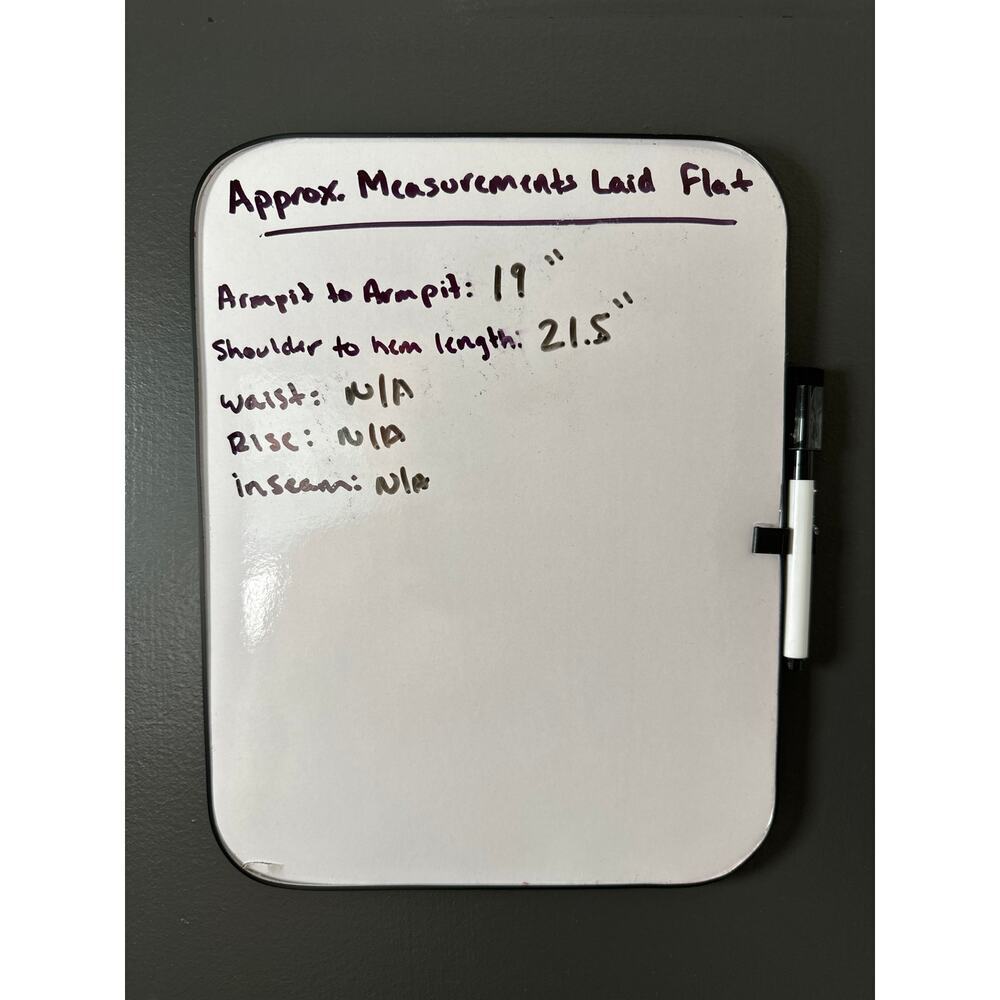 Approx. Measurements Laid Flat
Armpit to Armpit: 19"
Shoulder to hem length: 21.5"
waist: N/A
Rise: N/A
inseam: N/A